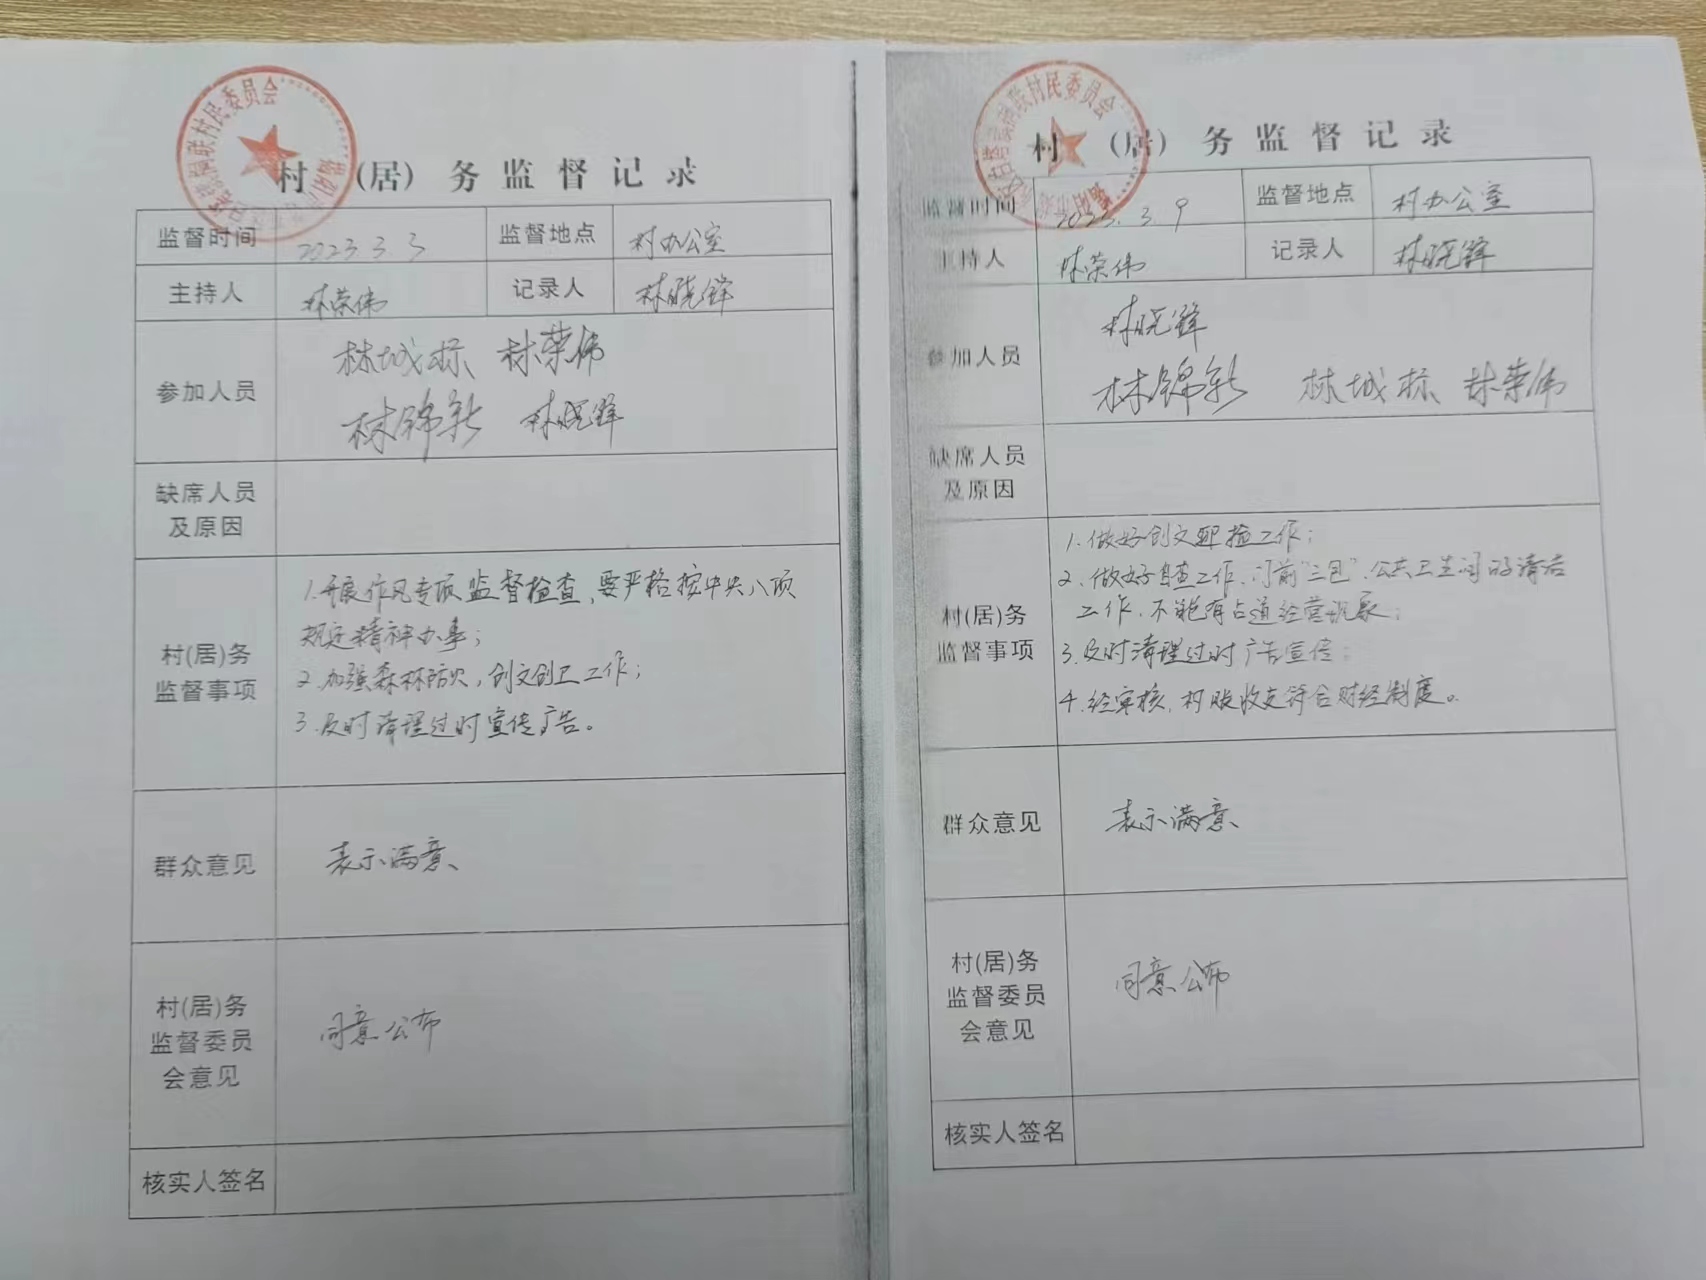 锅联村民委员会
村（居）务监督记录
监督时间 2023.3.3 监督地点 村办公室
主持人 林荣伟 记录人 林晓锋
林城标 林荣伟
参加人员
林锦新 林晓锋
缺席人员
及原因
1.开展作风专项监督检查,要严格按中央八项
规定精神办事;
村(居)务
监督事项
2.加强森林防火,创文创卫工作;
3.及时清理过时宣传广告。
群众意见 表示满意
村(居)务
监督委员
会意见
同意公布
核实人签名
锅联村民委员会
村（居）务监督记录
监督时间 2023.3.9 监督地点 村办公室
主持人 林荣伟 记录人 林晓锋
林晓锋
参加人员
林锦新 林城标 林荣伟
缺席人员
及原因
1.做好创文迎检工作;
2.做好自查工作,门前"三包"、公共卫生间的清洁
工作,不能有占道经营现象;
村(居)务
监督事项
3.及时清理过时广告宣传;
4.经审核,村账收支符合财经制度。
群众意见 表示满意
村(居)务
监督委员
会意见
同意公布
核实人签名